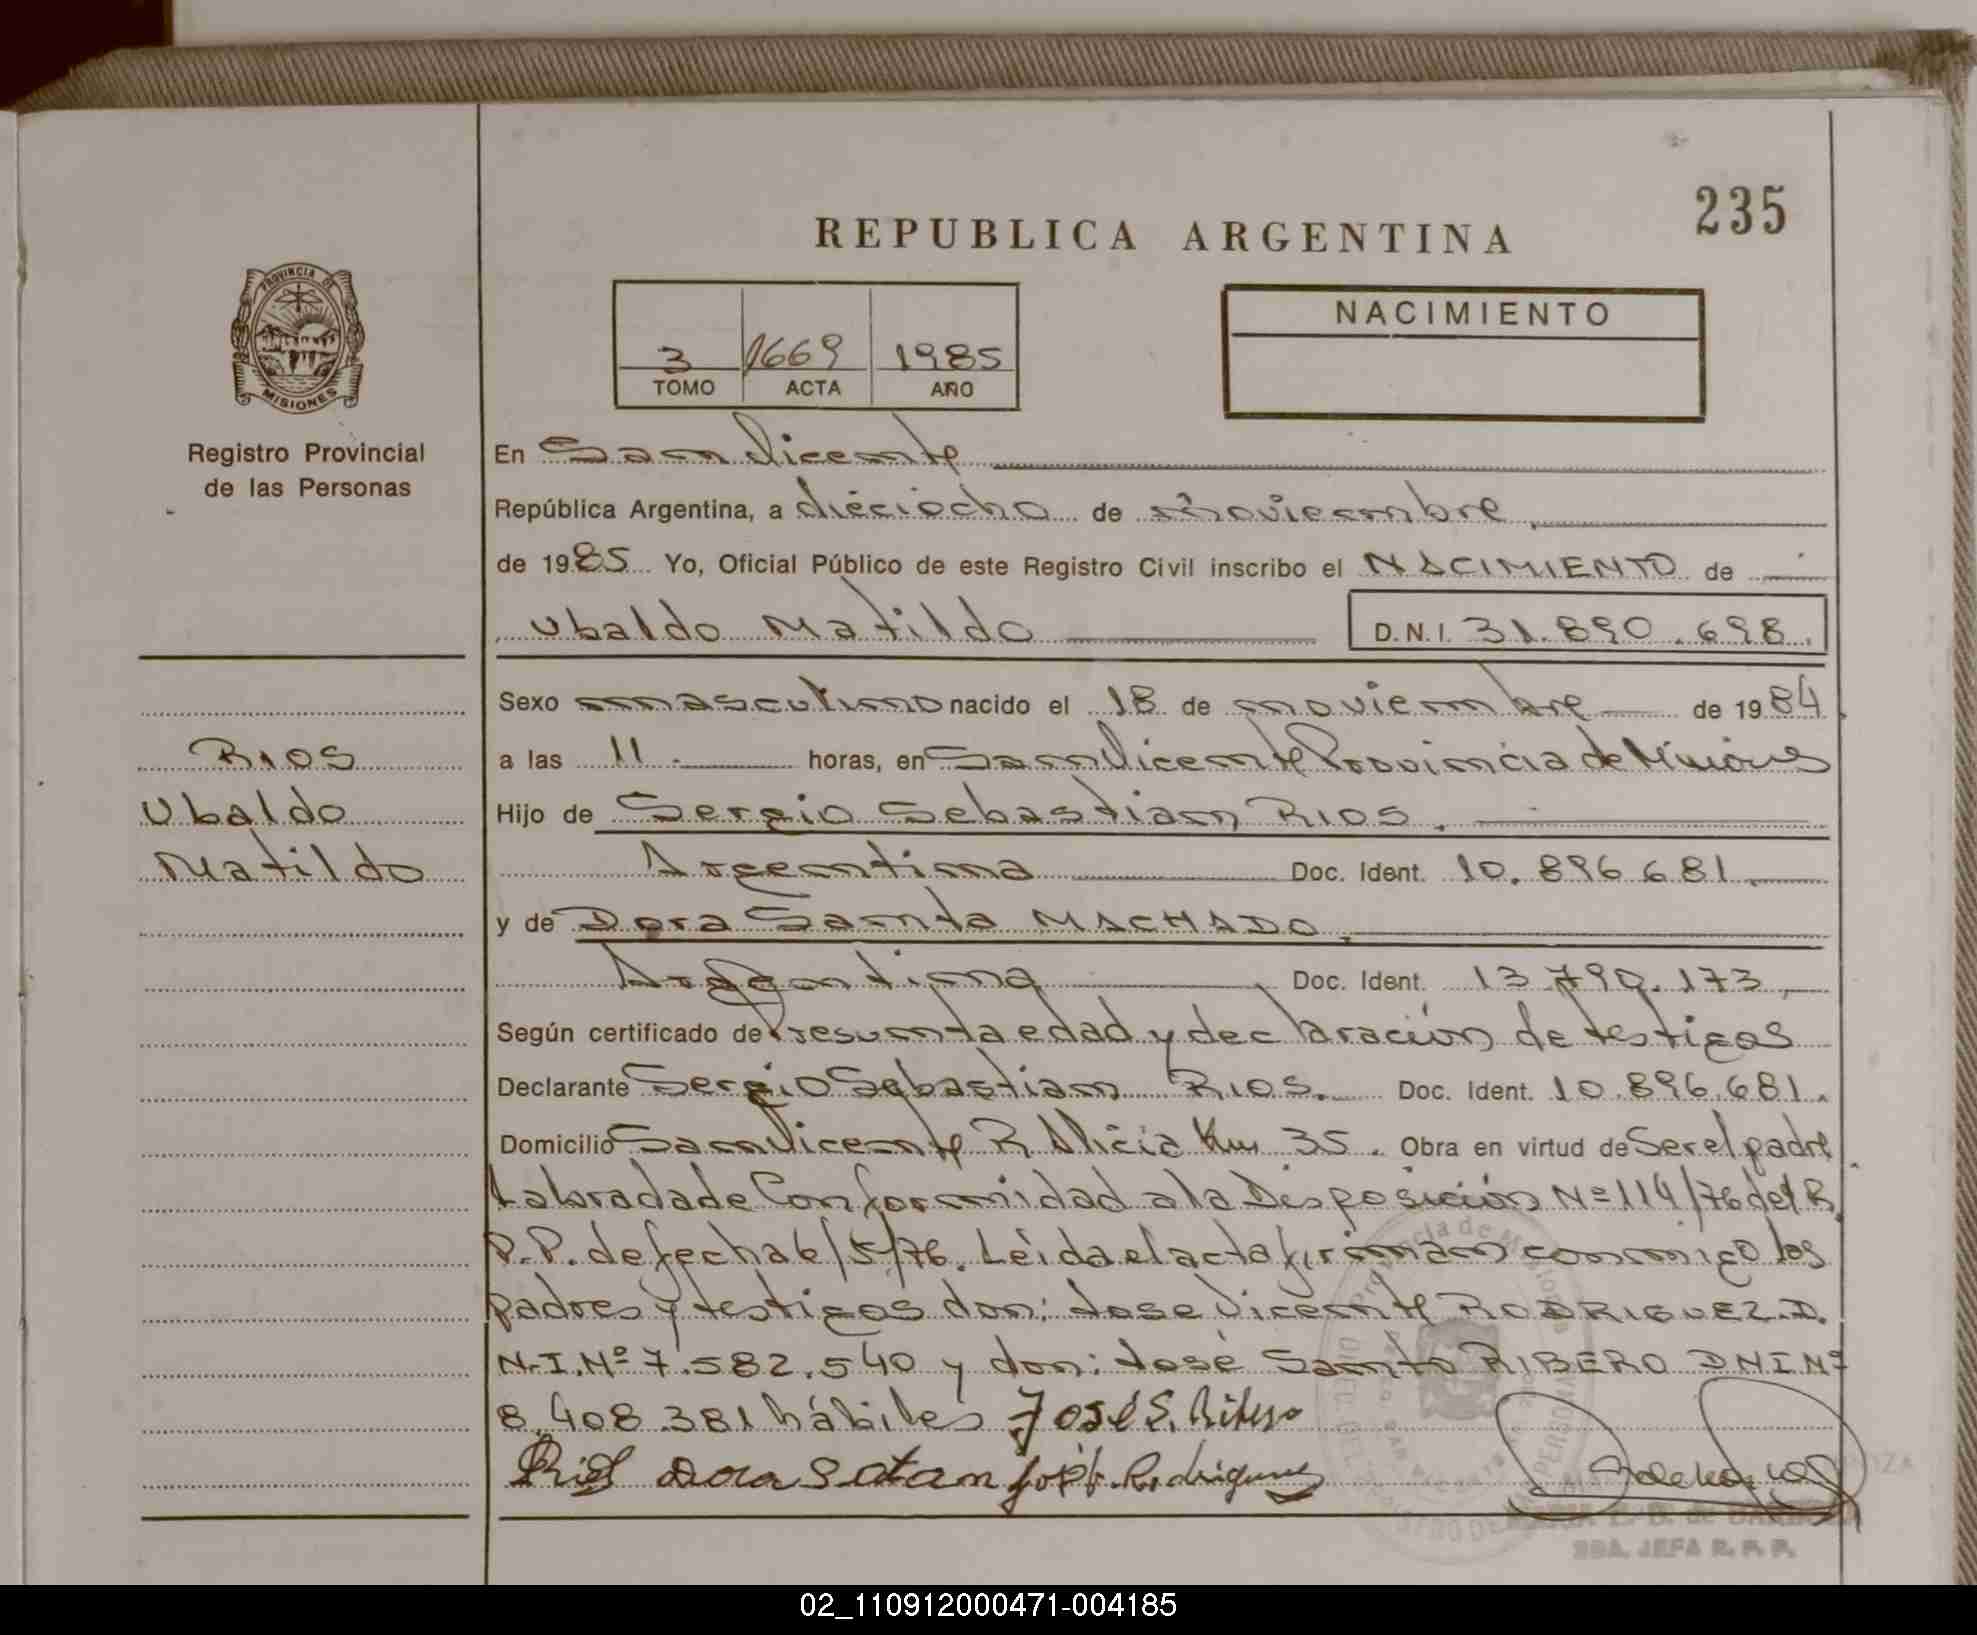 235
REPUBLICA ARGENTINA
PROVINCIA DE
MISIONES
Registro Provincial
de las Personas
3 1669 1985
TOMO ACTA AÑO
NACIMIENTO
En San Vicente
República Argentina, a dieciocho de noviembre
de 1985 Yo, Oficial Público de este Registro Civil inscribo el NACIMIENTO de
Ubaldo Matildo D.N.I. 31.890.698.
Sexo masculino nacido el 18 de noviembre de 1984
RIOS
Ubaldo
Matildo
a las 11 horas, en San Vicente Provincia de Misiones
Hijo de Sergio Sebastian RIOS.
Argentina Doc. Ident. 10.896.681
y de Dora Santa MACHADO,
Argentina Doc. Ident. 13.790.173,
Según certificado de Presunta edad y declaración de testigos
Declarante Sergio Sebastian RIOS. Doc. Ident. 10.896.681.
Domicilio San Vicente R. Alicia Km 35. Obra en virtud de Ser el padre
Labrada de Conformidad a la Disposición Nº 114/76 del R.
P.P. de fecha 6/5/76. Leída el acta firman conmigo los
padres y testigos don: Jose Vicente RODRIGUEZ. D.
N.I. Nº 7.582.540 y don: José Santo RIBERO DNI Nº
8.408.381 hábiles José S. Ribero
Rios Dora Satan José V. Rodriguez
SBA. JEFA R. P. P.
02_110912000471-004185